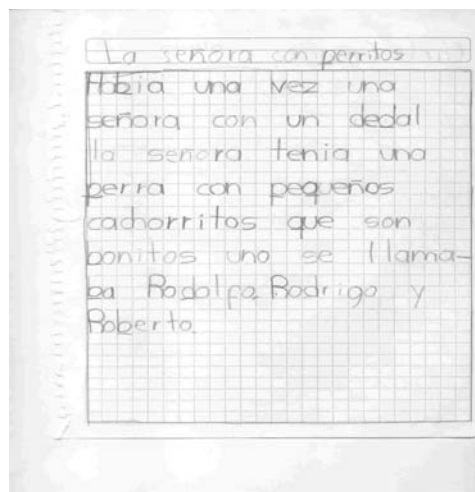 La señora con perritos
Había una vez una
señora con un dedal
la señora tenia una
perra con pequeños
cachorritos que son
bonitos uno se llama-
ba Rodolfo, Rodrigo y
Roberto.